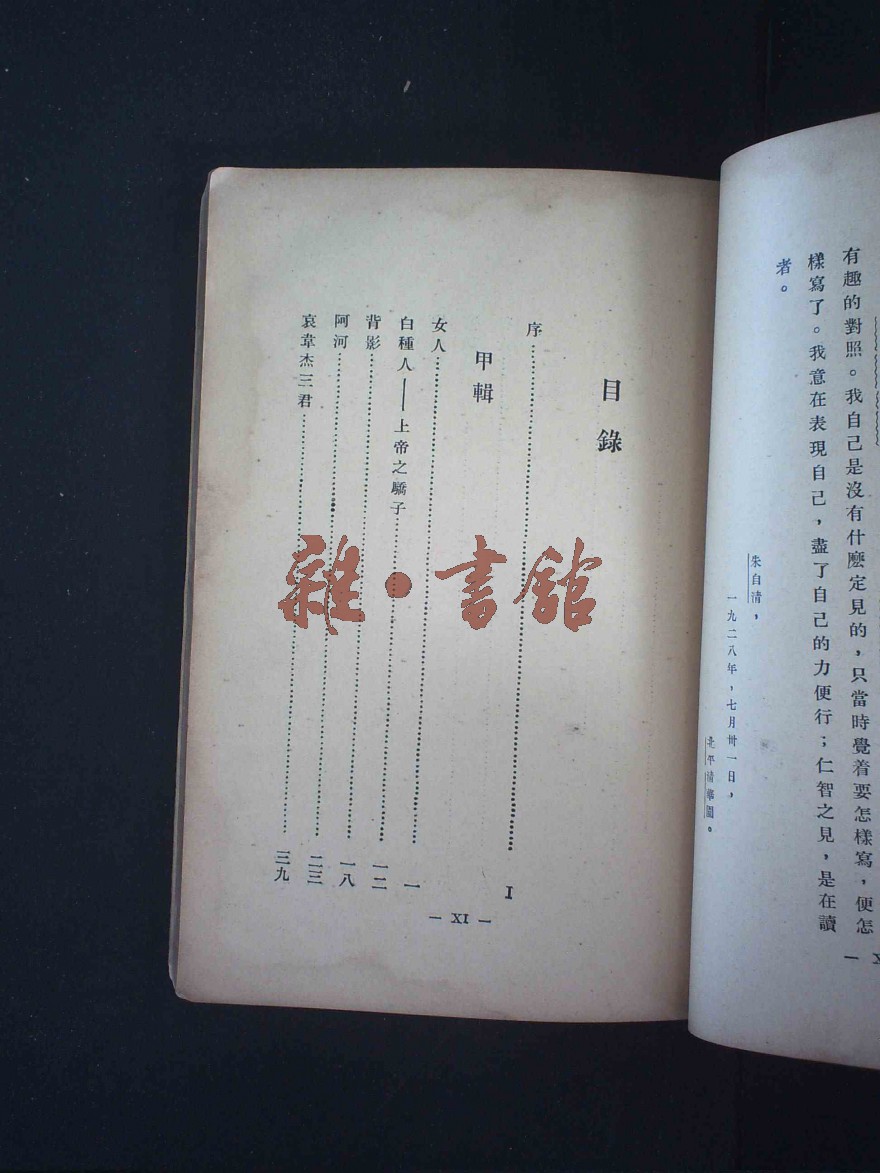 有趣的對照。我自己是沒有什麼定見的,只當時覺着要怎樣寫,便怎
樣寫了。我意在表現自己,盡了自己的力便行;仁智之見,是在讀
者。
朱自清,
一九二八年,七月卅一日,
北平清華園。
目錄
序……I
甲輯
女人……一
白種人——上帝之驕子……一二
背影……一八
阿河……二三
哀韋杰三君……三九
— XI —
雜·書館